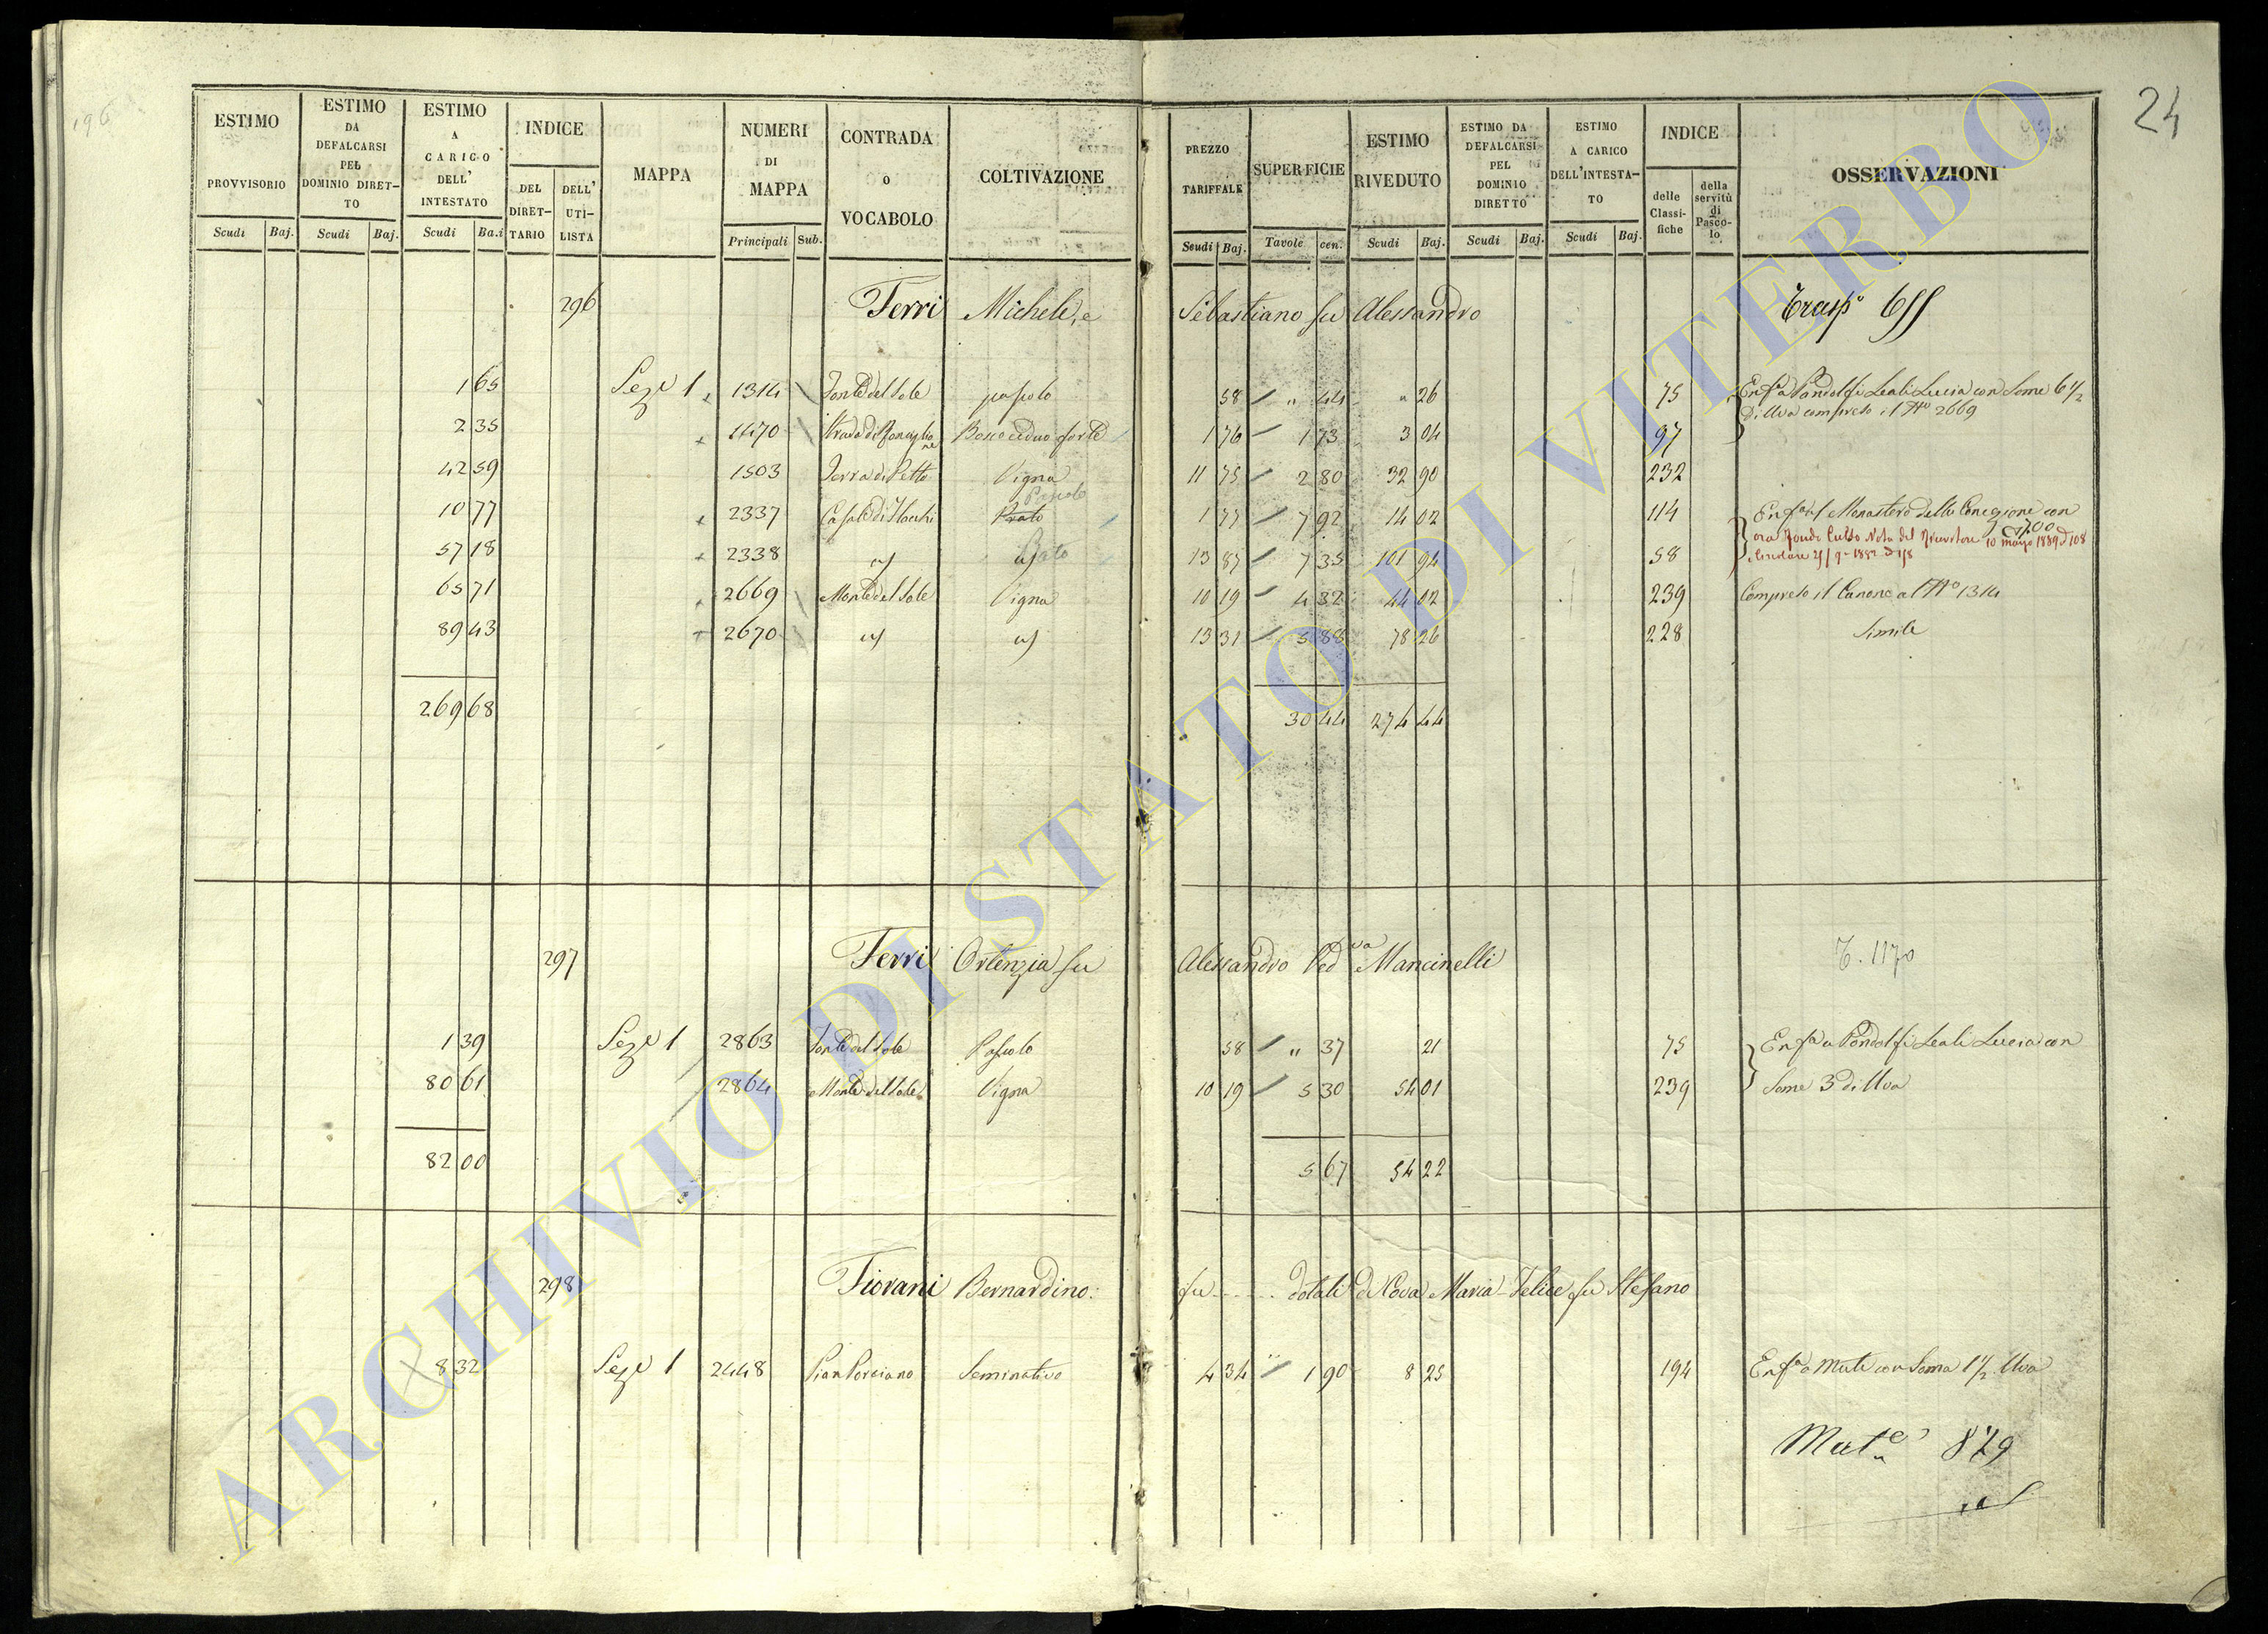 24
196
ESTIMO PROVVISORIO Scudi Baj.
ESTIMO DA DEFALCARSI PEL DOMINIO DIRET-TO Scudi Baj.
ESTIMO A CARICO DELL' INTESTATO Scudi Ba.i
INDICE DEL DIRET-TARIO DELL' UTI-LISTA
MAPPA
NUMERI DI MAPPA Principali Sub.
CONTRADA o VOCABOLO
COLTIVAZIONE
PREZZO TARIFFALE Scudi Baj.
SUPERFICIE Tavole cen.
ESTIMO RIVEDUTO Scudi Baj.
ESTIMO DA DEFALCARSI PEL DOMINIO DIRETTO Scudi Baj.
ESTIMO A CARICO DELL'INTESTA-TO Scudi Baj.
INDICE delle Classi-fiche della servitù di Pasco-lo
OSSERVAZIONI
296 Ferri Michele, e Sebastiano fu Alessandro
1 65 Sez.e 1 1314 Fonte del Sole pascolo 58 " 44 " 26 75 Enf.a Pandolfi Leali Lucia con Some 6 1/2
di Uva compreso il N.o 2669
2 35 1470 Strada di Ronciglione Bosco ceduo forte 1 76 1 73 3 04 97
42 59 1503 Terra di Petto Vigna 11 75 2 80 32 90 232
10 77 2337 Casale di Prato Pascolo 1 77 7 92 14 02 114 Enf.a il Monastero della Concezione con
700
ora Fondo Culto Nota del Ricevitore 10 marzo 1889 N 108
57 18 2338 id Prato 13 87 7 35 101 94 58
65 71 2669 Monte del Sole Vigna 10 19 4 32 44 02 239 Compreso il Canone al N.o 1314
89 43 2670 id id 13 31 5 88 78 26 228 Simile
269 68 30 44 274 44
297 Ferri Ortenzia fu Alessandro Ved.va Mancinelli
T. 1170
1 39 Sez.e 1 2863 Fonte del Sole Pascolo 58 " 37 21 75 Enf.a a Pandolfi Leali Lucia con
80 61 2864 Monte del Sole Vigna 10 19 5 30 54 01 239 Some 3 di Uva
82 00 5 67 54 22
298 Fiorani Bernardino fu .... dotali di Cova Maria Felice fu Stefano
8 32 Sez.e 1 2448 Pian Porciano Seminativo 4 34 " 1 90 8 25 194 Enf.a a Muti con Soma 1 1/2 Uva
829
ARCHIVIO DI STATO DI VITERBO